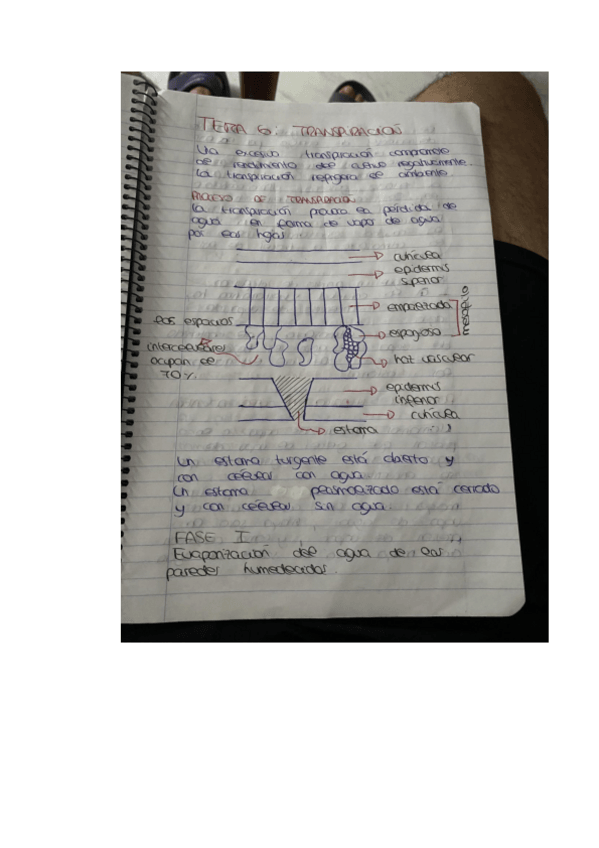 TEMA 6: TRANSPIRACIÓN
Una excesiva transpiración compromete
el rendimiento del cultivo negativamente.
La transpiración refrigera el ambiente.
PROCESO DE TRANSPIRACIÓN
La transpiración provoca la pérdida de
agua en forma de vapor de agua
por las hojas
cutícula
epidermis
superior
empalizada
mesofilo
los espacios
intercelulares
ocupan el
70%
esponjoso
haz vascular
epidermis
inferior
cutícula
estoma
Un estoma turgente está abierto y
con células con agua.
Un estoma plasmolizado está cerrado
y con células sin agua.
FASE I
Evaporización del agua de las
paredes humedecidas.